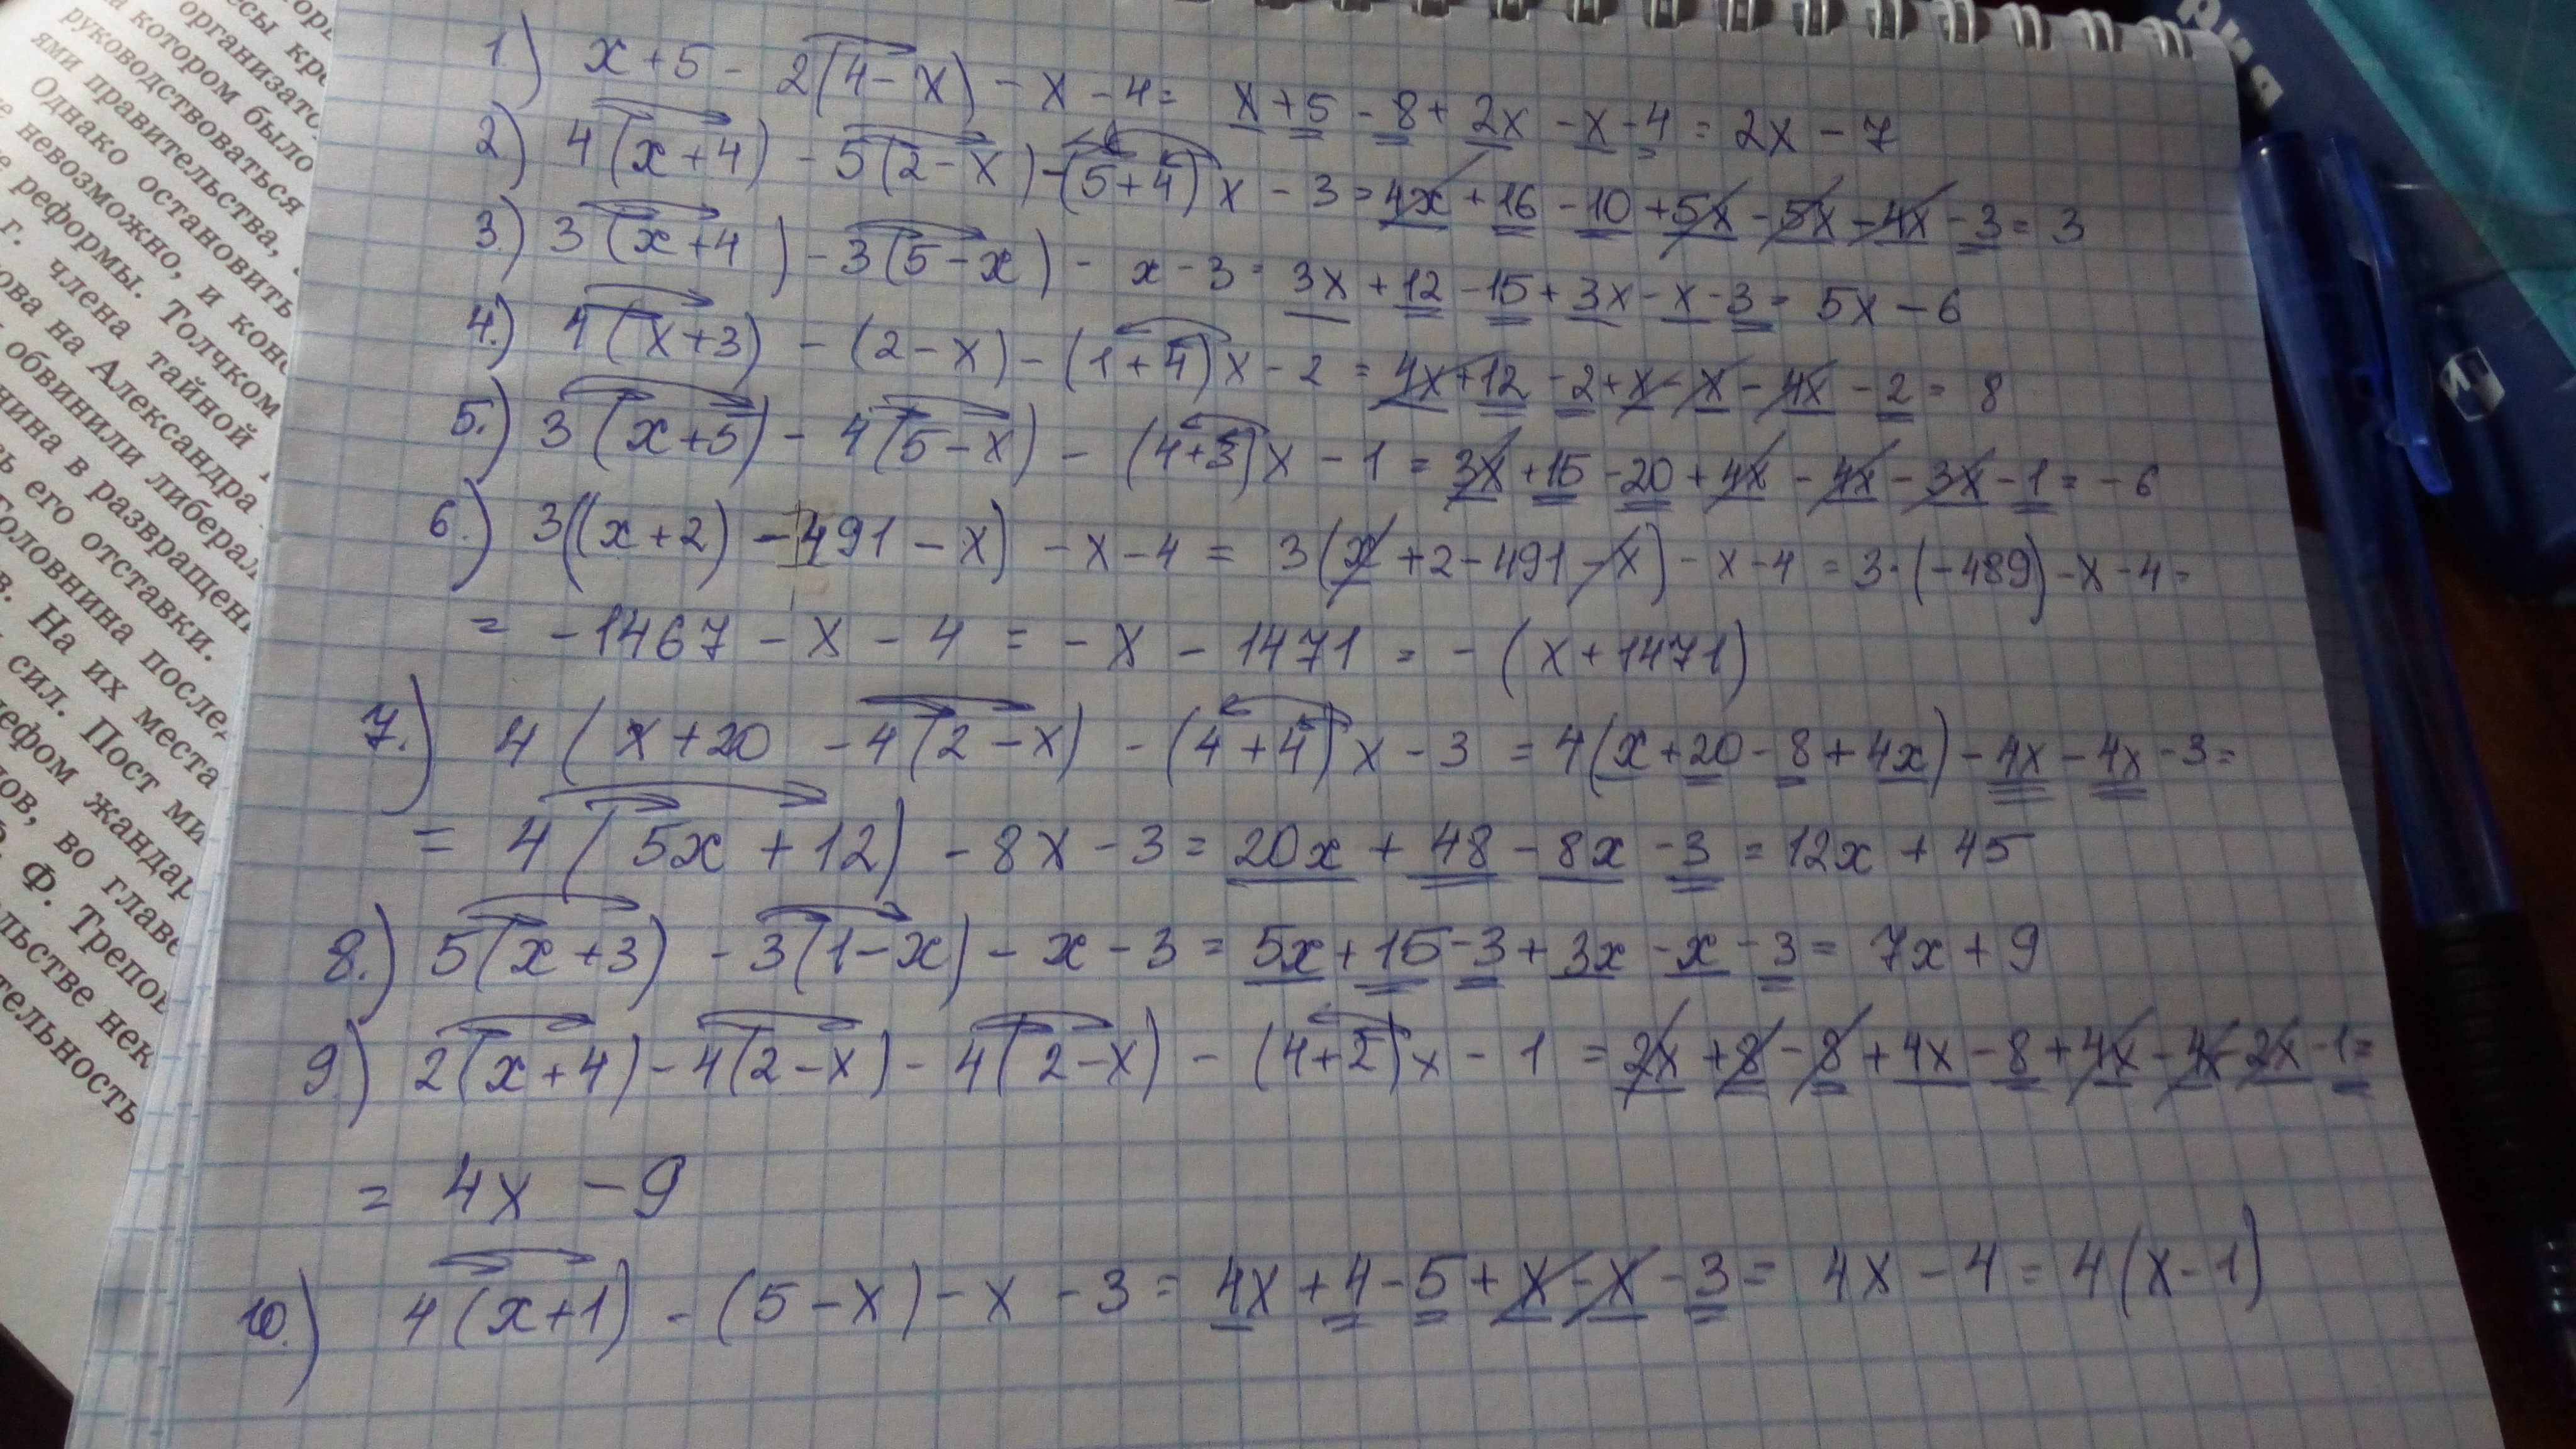 орга
организато
на котором было
руководствоваться
ями правительства,
Однако остановить
е невозможно, и
е реформы. Толчком
г. члена тайной
ова на Александра
обвинили либерал
нина в развращени
ь его отставки.
Головнина после
в. На их места
сил. Пост ми
шефом жандар
ов, во главе
Ф. Трепов
льстве нек
тельность
1.) x+5 - 2(4-x) - x - 4 = x+5-8+2x-x-4 = 2x-7
2) 4(x+4) - 5(2-x) - (5+4)x - 3 = 4x+16-10+5x-5x-4x-3 = 3
3.) 3(x+4) - 3(5-x) - x - 3 = 3x+12-15+3x-x-3 = 5x-6
4.) 4(x+3) - (2-x) - (1+4)x - 2 = 4x+12-2+x-x-4x-2 = 8
5.) 3(x+5) - 4(5-x) - (4+3)x - 1 = 3x+15-20+4x-4x-3x-1 = -6
6.) 3((x+2) - 491 - x) - x - 4 = 3(x+2-491-x) - x - 4 = 3·(-489) - x - 4 =
= -1467 - x - 4 = -x - 1471 = -(x+1471)
7.) 4(x+20 - 4(2-x) - (4+4)x - 3 = 4(x+20-8+4x) - 4x - 4x - 3 =
= 4(5x+12) - 8x - 3 = 20x + 48 - 8x - 3 = 12x + 45
8.) 5(x+3) - 3(1-x) - x - 3 = 5x+15-3+3x-x-3 = 7x+9
9.) 2(x+4) - 4(2-x) - 4(2-x) - (4+2)x - 1 = 2x+8-8+4x-8+4x-4x-2x-1 =
= 4x - 9
10.) 4(x+1) - (5-x) - x - 3 = 4x+4-5+x-x-3 = 4x-4 = 4(x-1)